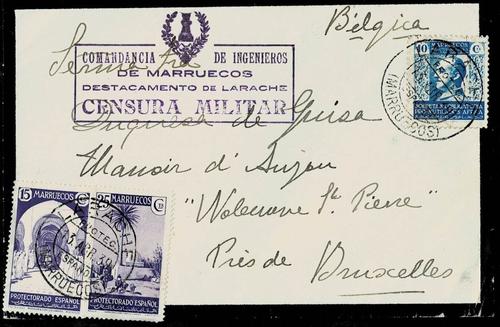 Bélgica
COMANDANCIA DE INGENIEROS
DE MARRUECOS
DESTACAMENTO DE LARACHE
CENSURA MILITAR
Duquesa de Guisa
Manoir d'Anjou
"Woluwe St. Pierre"
Près de Bruxelles
MARRUECOS
10 Cs
PRO MUTILADOS AFRICA
(MARRUECOS)
15 MARRUECOS
PROTECTORADO ESPAÑOL
25 MARRUECOS
PROTECTORADO ESPAÑOL
LARACHE
(MARRUECOS)